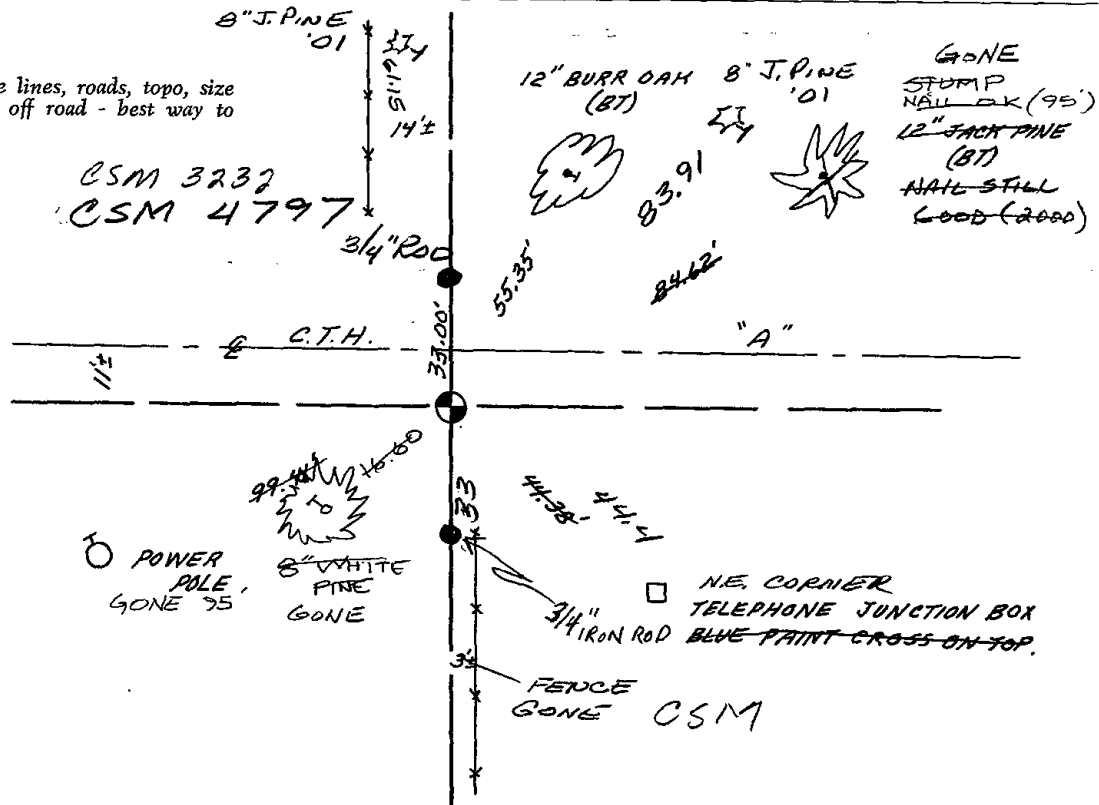 8" J. PINE
'01
61.15
14'±
e lines, roads, topo, size
off road - best way to
CSM 3232
CSM 4797
3/4" ROD
12" BURR OAK
(BT)
8" J. PINE
'01
GONE
STUMP
NAIL OK (95')
12" JACK PINE
(BT)
NAIL STILL
GOOD (2000)
83.91
55.35'
84.62'
33.00'
C.T.H. "A"
11'±
16.60
33
44.38'
44.4
POWER
POLE.
GONE 95
8" WHITE
PINE
GONE
3/4"
IRON ROD
N.E. CORNER
TELEPHONE JUNCTION BOX
BLUE PAINT CROSS ON TOP.
3'±
FENCE
GONE
CSM